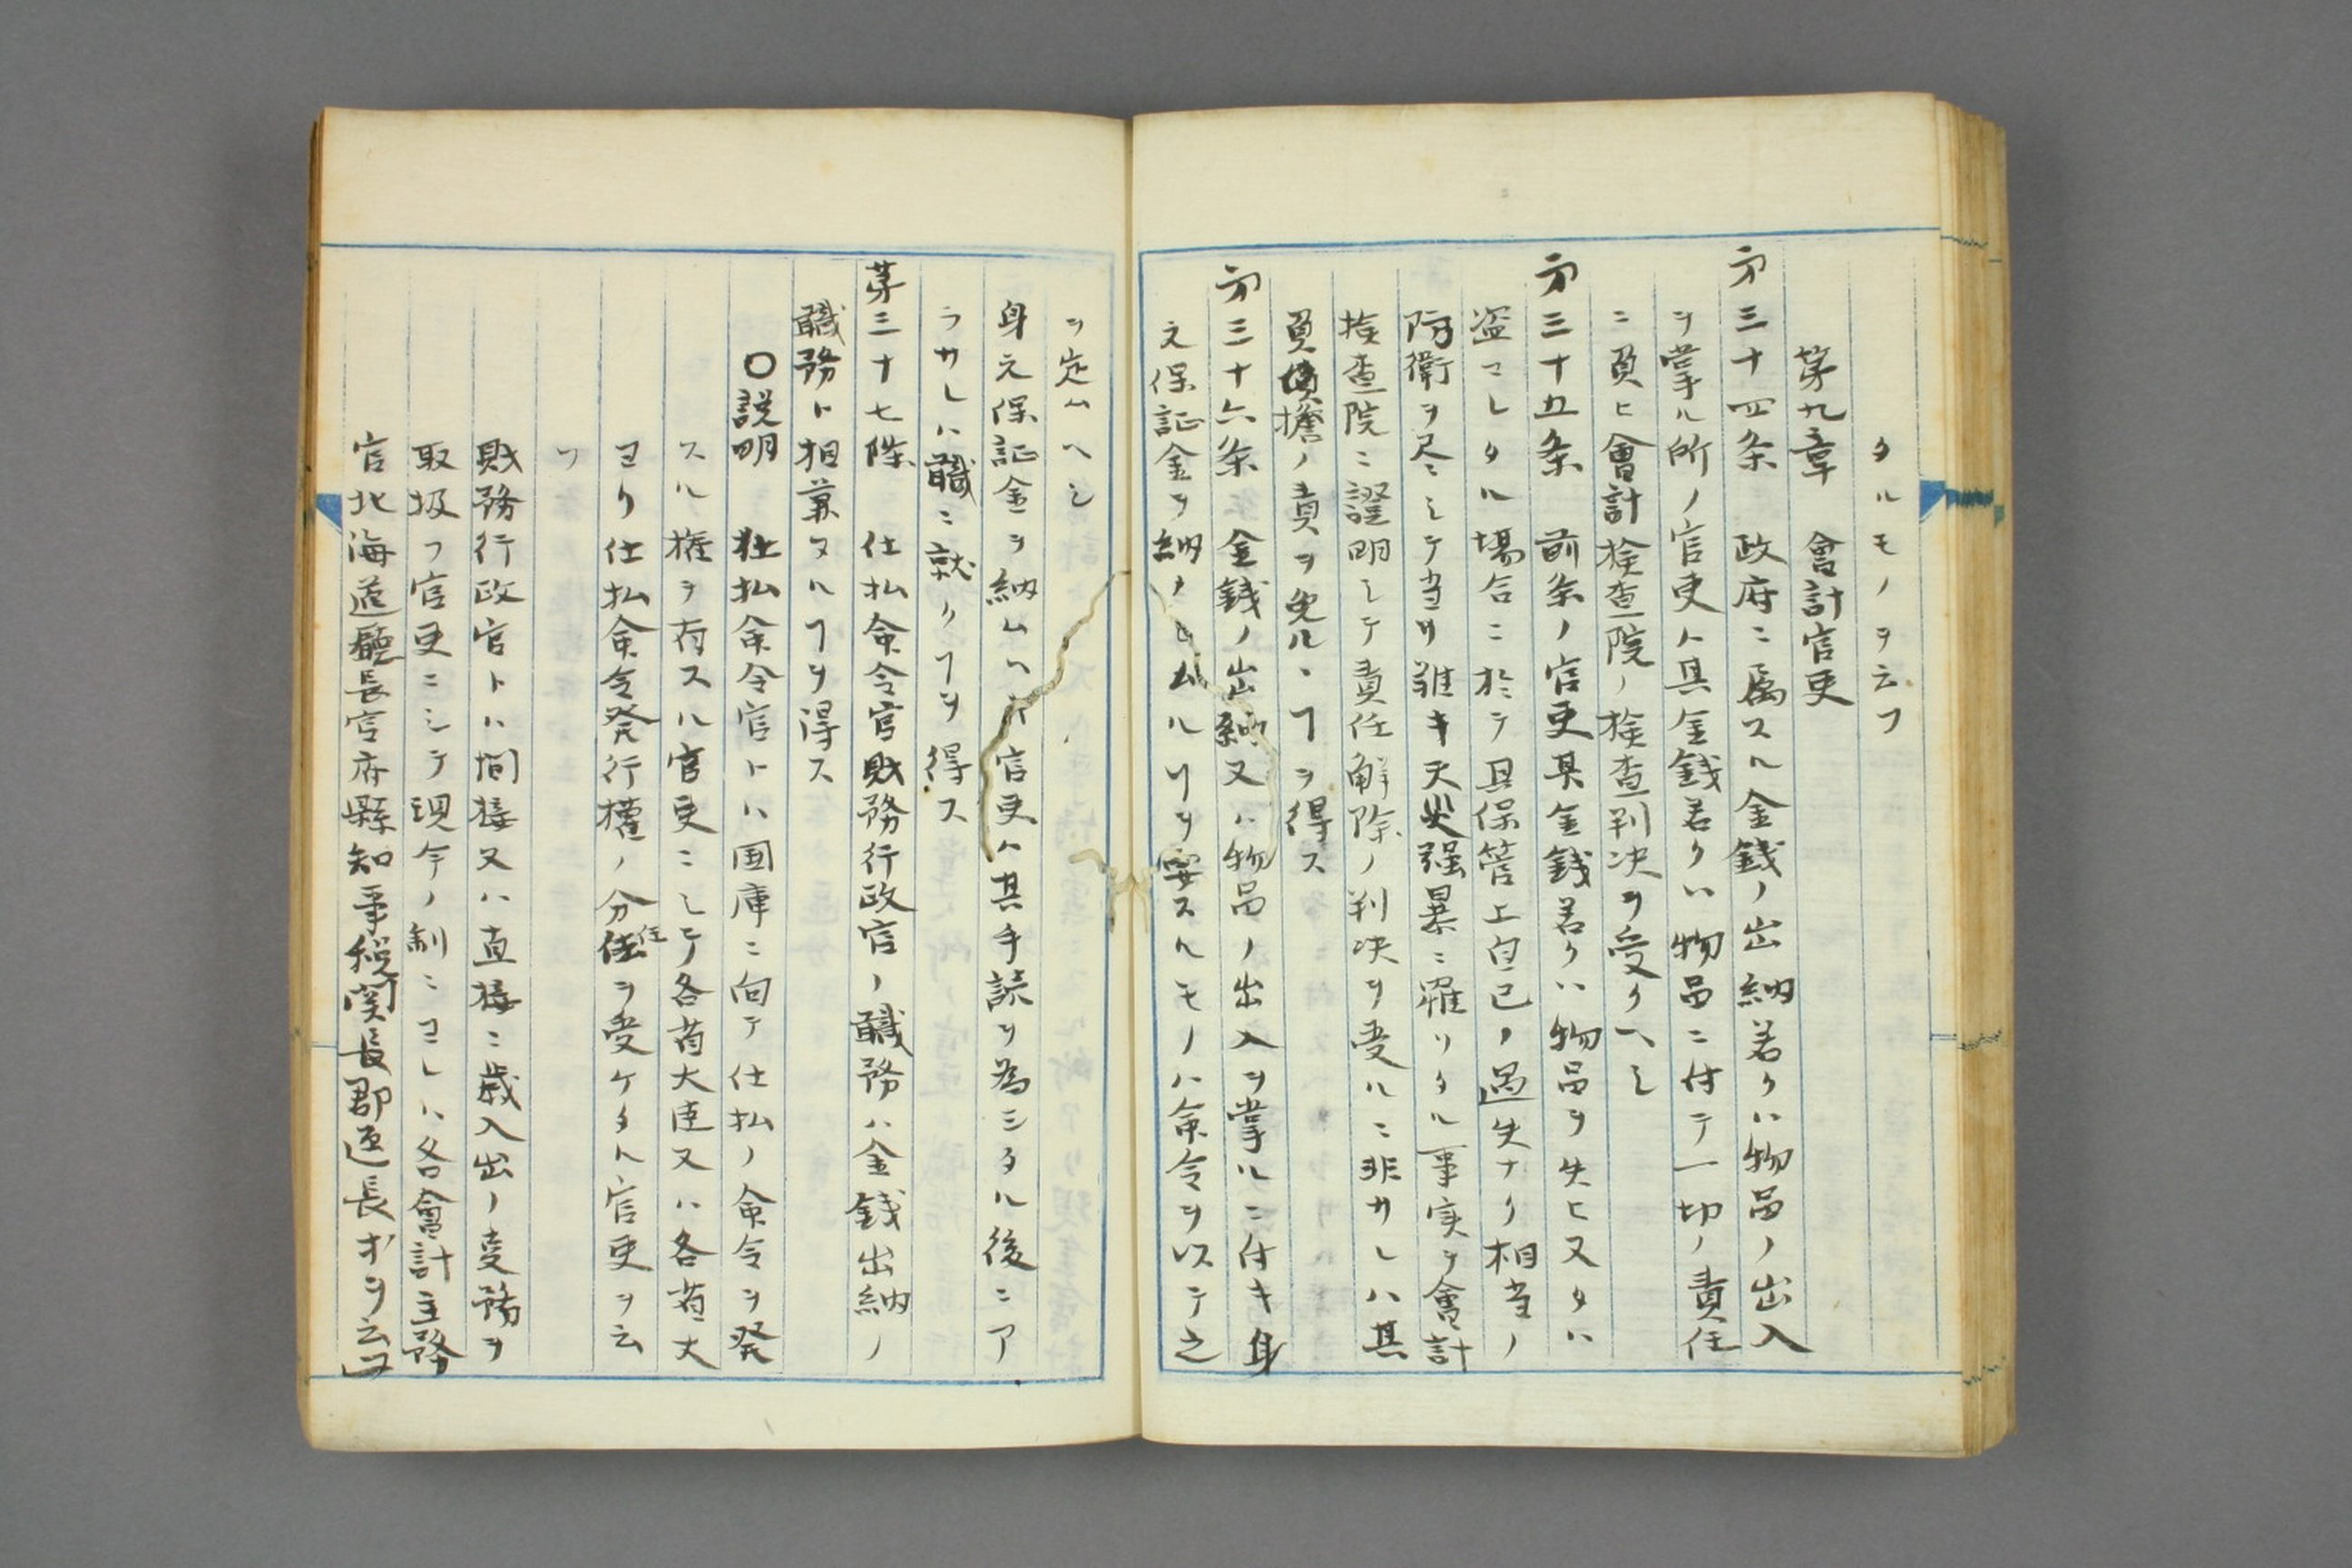 タルモノヲ云フ
第九章　會計官吏
第三十四条　政府ニ属スル金銭ノ出納若クハ物品ノ出入
ヲ掌ル所ノ官吏ハ其金銭若クハ物品ニ付テ一切ノ責任
ニ負ヒ會計検査院ノ検査判决ヲ受クヘシ
第三十五条　前条ノ官吏其金銭若クハ物品ヲ失ヒ又タハ
盗マレタル場合ニ於テ其保管上自己ノ過失ナク相当ノ
防衛ヲ尽ニシテ当リ難キ天災強暴ニ罹リタル事実ヲ會計
検査院ニ證明シテ責任解除ノ判决ヲ受ルニ非サレハ其
負擔ノ責ヲ免ルヽヿヲ得ス
第三十六条　金銭ノ出納又ハ物品ノ出入ヲ掌ルニ付キ身
元保証金ヲ納メシムルヿヲ要スルモノハ命令ヲ以テ之
ヲ定ムヘシ
身元保証金ヲ納ムヘキ官吏ハ其手続ヲ為シタル後ニア
ラサレハ職ニ就クヿヲ得ス
第三十七條　仕払命令官財務行政官ノ職務ハ金銭出納ノ
職務ト相兼ヌルヿヲ得ス
〇説明　仕払命令官トハ国庫ニ向テ仕払ノ命令ヲ発
スル権ヲ有スル官吏ニシテ各省大臣又ハ各省大
臣ヨリ仕払命令発行権ノ分任ヲ受ケタル官吏ヲ云
フ
財務行政官トハ間接又ハ直接ニ歳入出ノ事務ヲ
取扱フ官吏ニシテ現今ノ制ニヨレハ各會計主務
官北海道廳長官府縣知事税関長郡区長等ヲ云フ